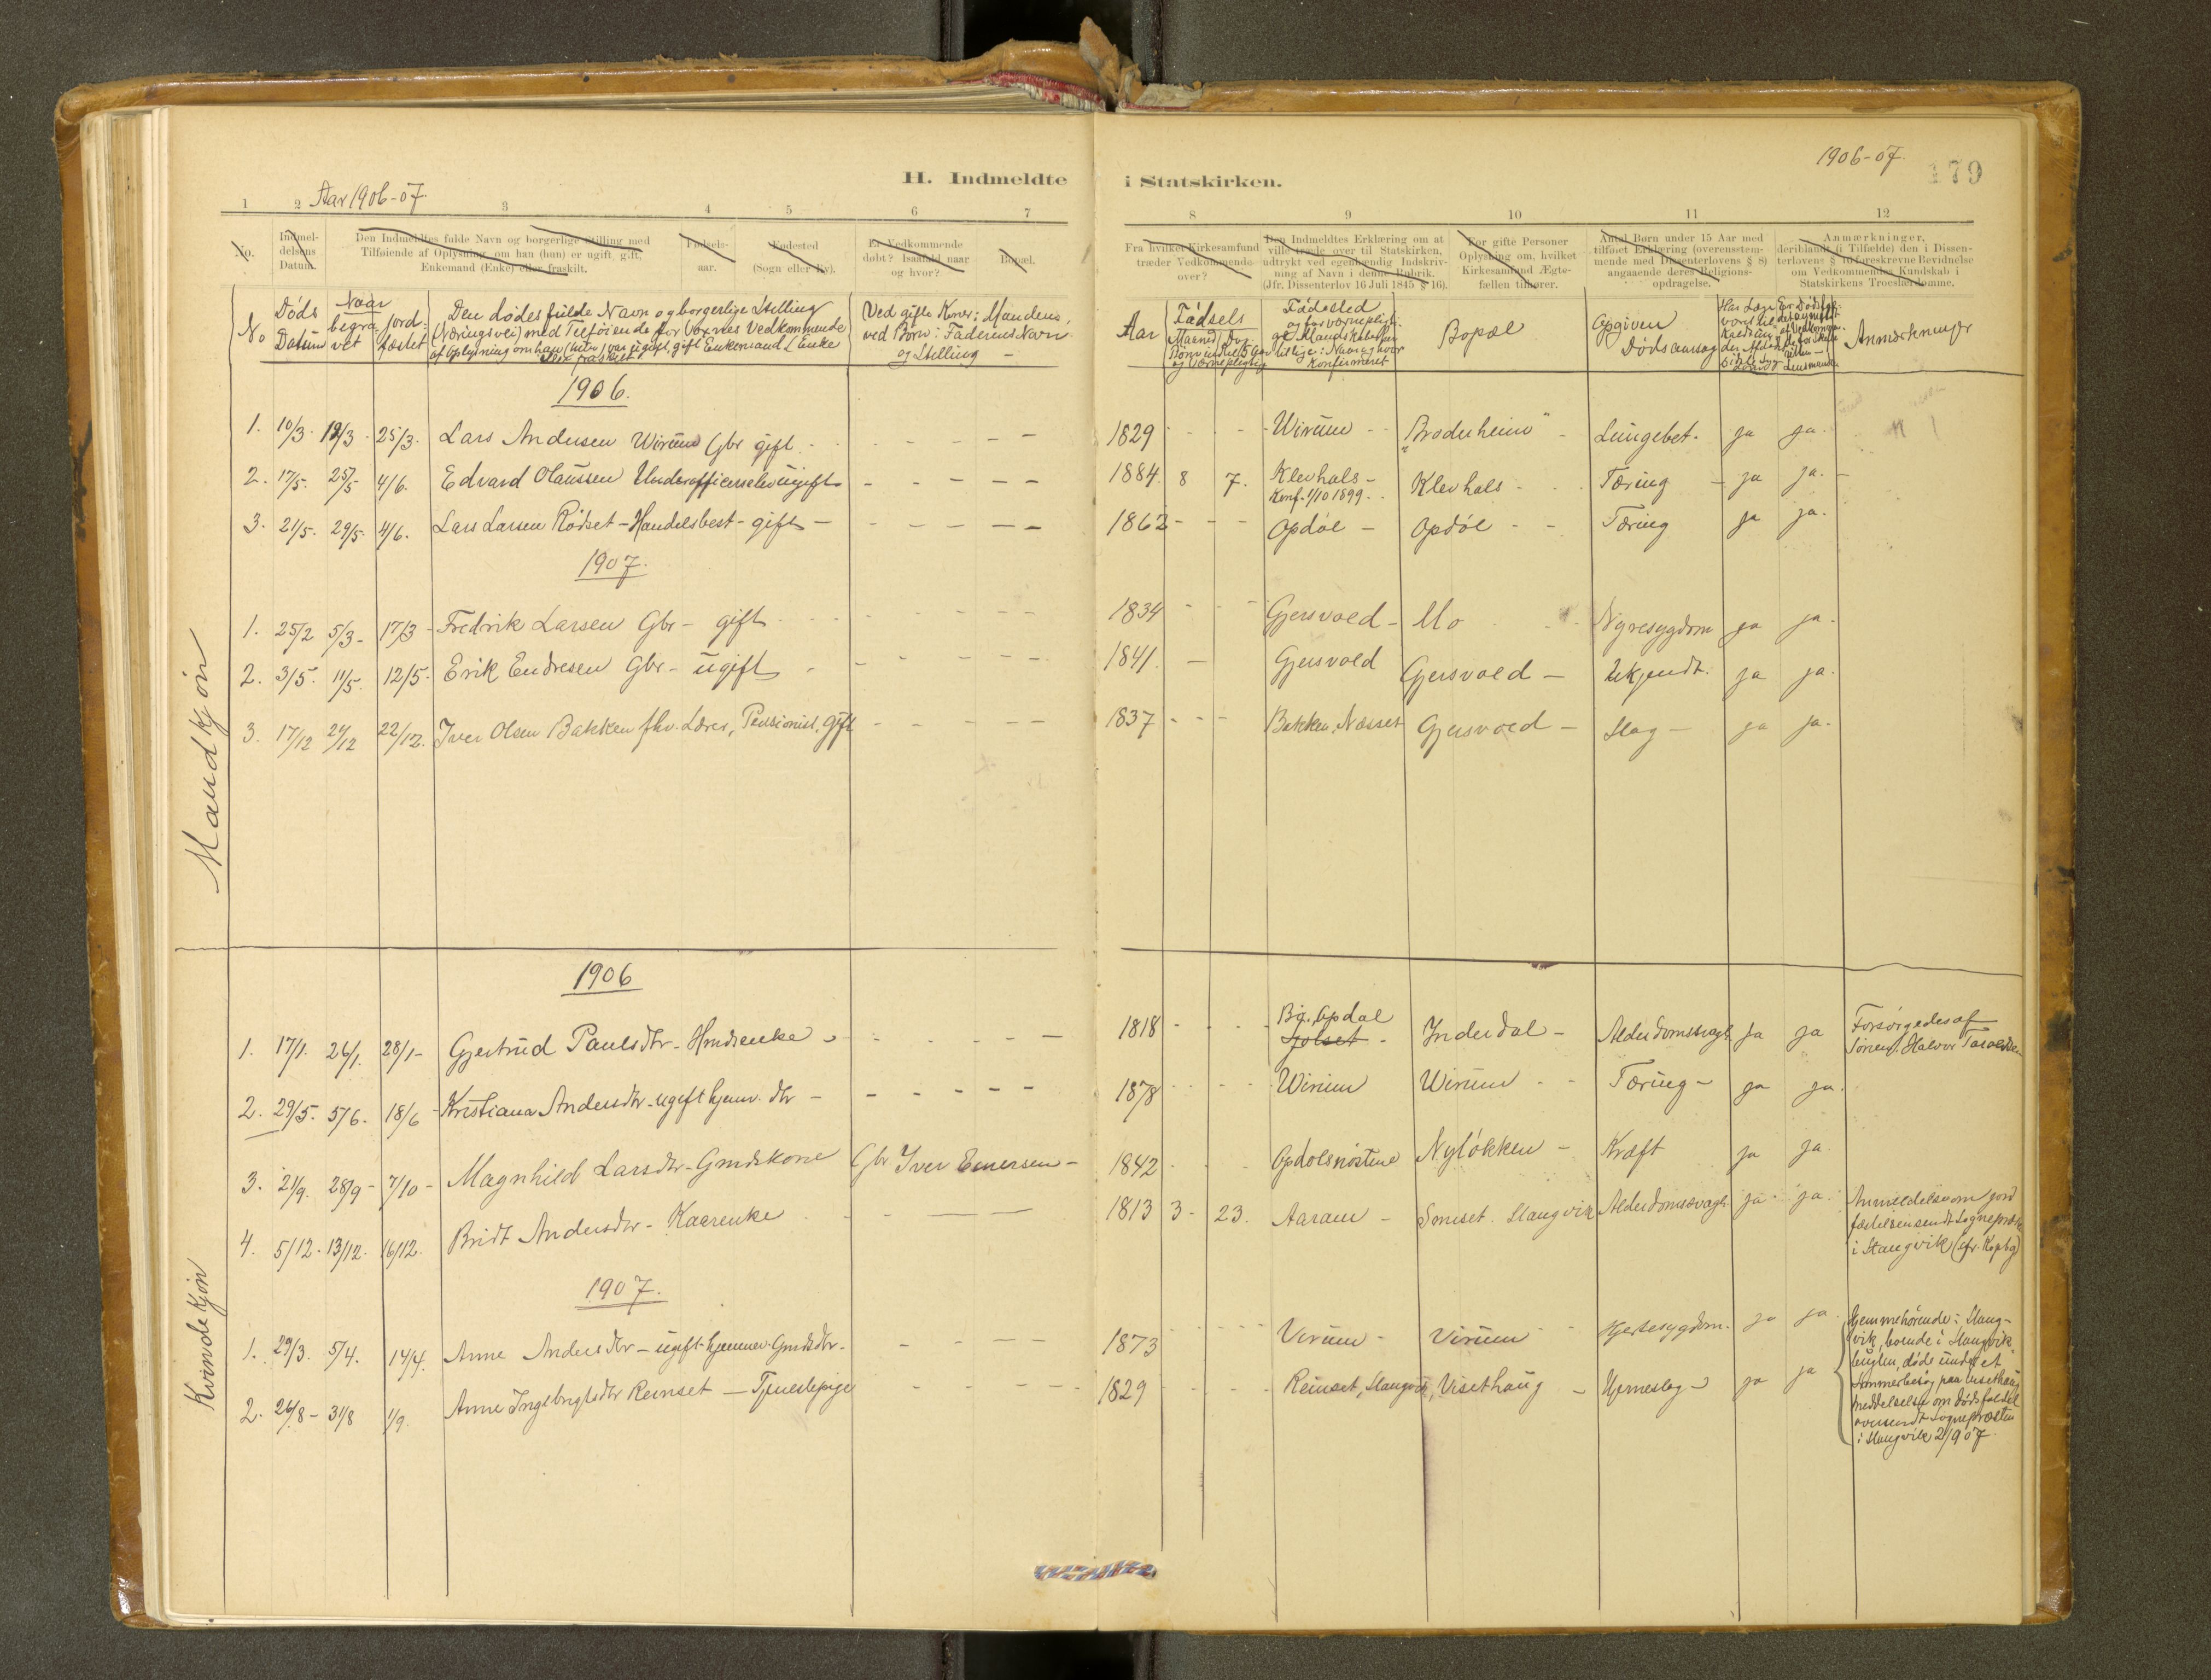 Aar 1906-07.
H. Indmeldte
1 2 3 4 5 6 7
No.
Indmel-
delsens
Datum.
Den Indmeldtes fulde Navn og borgerlige Stilling med
Tilføiende af Oplysning, om han (hun) er ugift, gift,
Enkemand (Enke) eller fraskilt.
Fødsels-
aar.
Fødested
(Sogn eller By).
Er Vedkommende
døbt? Isaafald naar
og hvor?
Bopæl.
No
Døds
Datum
Naar
begra
vet
jord-
fæstet
Den dødes fulde Navn og borgerlige Stilling
(Næringsvei) med Tilføiende for Voxnes Vedkommende
af Oplysning om han (hun) var ugift, gift Enkemand (Enke
eller fraskilt
Ved gifte Koner: Mandens,
ved Børn: Faderens Navn
og Stilling -
Mandkjøn
1906.
1. 10/3 19/3 25/3. Lars Andersen Wirum Gbr gift
2. 17/5. 25/5 4/6. Edvard Olaussen Underofficerselev ugift
3. 21/5. 29/5. 4/6. Lars Larsen Rødset - Handelsbest - gift -
1907.
1. 25/2 5/3 - 17/3 - Fredrik Larsen Gbr - gift
2. 3/5. 11/5. 12/5. Erik Endresen Gbr - ugift
3. 17/12 21/12 22/12. Iver Olsen Bakken fhv. Lærer, Pensionist, gift
Kvindekjøn
1906
1. 17/1. 26/1. 28/1 - Gjertrud Paulsdtr - Hmdsenke
2. 29/5. 5/6. 18/6 - Kristiana Andersdtr - ugift hjemv. dtr -
3. 21/9. 28/9 - 7/10 - Magnhild Larsdtr - Gmdskone Gbr Iver Einersen -
4. 5/12. 13/12. 16/12. Bridt Andersdtr - Kaarenke
1907.
1. 29/3. 5/4. 14/4. Anne Andersdtr - ugift hjemmev. Gmdsdtr -
2. 26/8 - 31/8 1/9 Anne Ingebrigtsdtr Reinset - Tjenestepige
1906-07.
179
i Statskirken.
8 9 10 11 12
Fra hvilket Kirkesamfund
træder Vedkommende
over?
Den Indmeldtes Erklæring om at
ville træde over til Statskirken,
udtrykt ved egenhændig Indskriv-
ning af Navn i denne Rubrik.
(Jfr. Dissenterlov 16 Juli 1845 § 16).
For gifte Personer
Oplysning om, hvilket
Kirkesamfund Ægte-
fællen tilhører.
Antal Børn under 15 Aar med
tilføiet Erklæring (overensstem-
mende med Dissenterlovens § 8)
angaaende deres Religions-
opdragelse.
Anmærkninger,
deriblandt (i Tilfælde) den i Dissen-
terlovens § 16 foreskrevne Bevidnelse
om Vedkommendes Kundskab i
Statskirkens Troeslærdomme.
Aar
Fødsels
Maaned Dag
Fødested
Konfirmeret
Bopæl
Opgiven
Dødsaarsag
Anmærkninger
1829 - - - Wirum - "Broderheim" - Lungebet. ja ja.
1884. 8 7. Klevhals - Klevhals - Tæring - ja ja. -
Konf. 1/10 1899.
1862 - - - Opdøl - Opdøl - - Tæring ja ja.
1834 - - - Gjersvold - Mo Nyresygdom ja ja.
1841. - Gjersvold Gjersvold - Ukjendt. ja ja.
1837 - - - Bakken, Næsset Gjersvold - Slag - ja ja.
1818 - - - Big. Opdal Inderdal - Alderdomssvagh. ja ja Forsørgedes af
Jolset - Sønnen Halvor
1878 - - - Wirum Wirum - - Tæring - ja ja.
1842 - - Opdølsnøstene Nyløkken - Kræft ja ja.
1813 3 - 23. Aaram - Somset. Stangvik Alderdomssvagh. ja ja. Anmeldelse om jord
fæstelsen sendt Sognepræst
i Stangvik (cfr. Kopbg)
1873 - - - Virum - Virum - Hjertesygdom. ja ja. Hjemmehørende i Stang-
vik, boende i Stangvik-
bugten, døde under et
1829 - - - Reinset, Stangvik, Visethaug - Hjerneslag - ja ja Sommerbesøg paa Visethaug
meddelelse om dødsfaldet
oversendt Sognepræsten
i Stangvik 2/9 07.